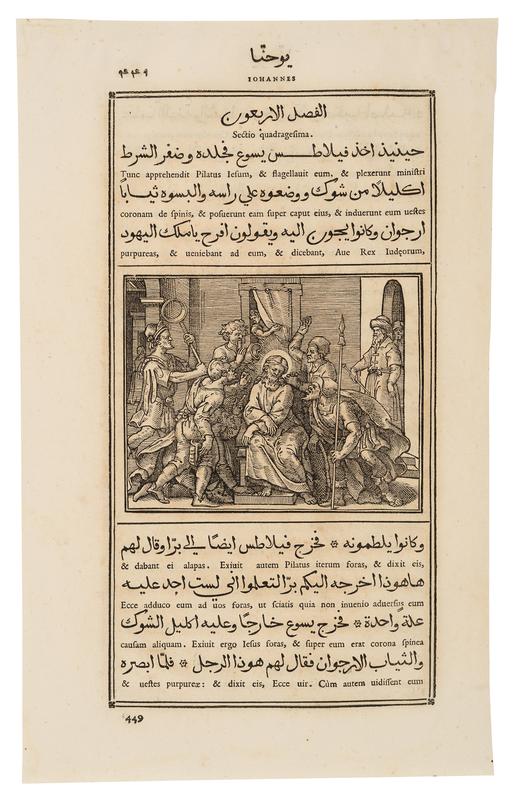 يوحنّا
٤٤٩
IOHANNES
الفصل الاربعون
Sectio quadragesima.
حينيذ اخذ فيلاطس يسوع فجلده وضفر الشرط
Tunc apprehendit Pilatus Iesum, & flagellauit eum, & plexerunt ministri
اكليلا من شوك ووضعوه علي راسه والبسوه ثيابًا
coronam de spinis, & posuerunt eam super caput eius, & induerunt eum uestes
ارجوان وكانوا يجون اليه ويقولون افرح ياملك اليهود
purpureas, & ueniebant ad eum, & dicebant, Aue Rex Iudęorum,
وكانوا يلطمونه * فخرج فيلاطس ايضًا الي برّا وقال لهم
& dabant ei alapas. Exiuit autem Pilatus iterum foras, & dixit eis,
هاهوذا اخرجه اليكم برّا لتعلموا اني لست اجد عليه
Ecce adduco eum ad uos foras, ut sciatis quia non inuenio aduersus eum
علة واحدة * فخرج يسوع خارجًا وعليه اكليل الشوك
causam aliquam. Exiuit ergo Iesus foras, & super eum erat corona spinea
والثياب الارجوان فقال لهم هوذا الرجل * فلمّا ابصره
& uestes purpureæ: & dixit eis, Ecce uir. Cùm autem uidissent eum
449